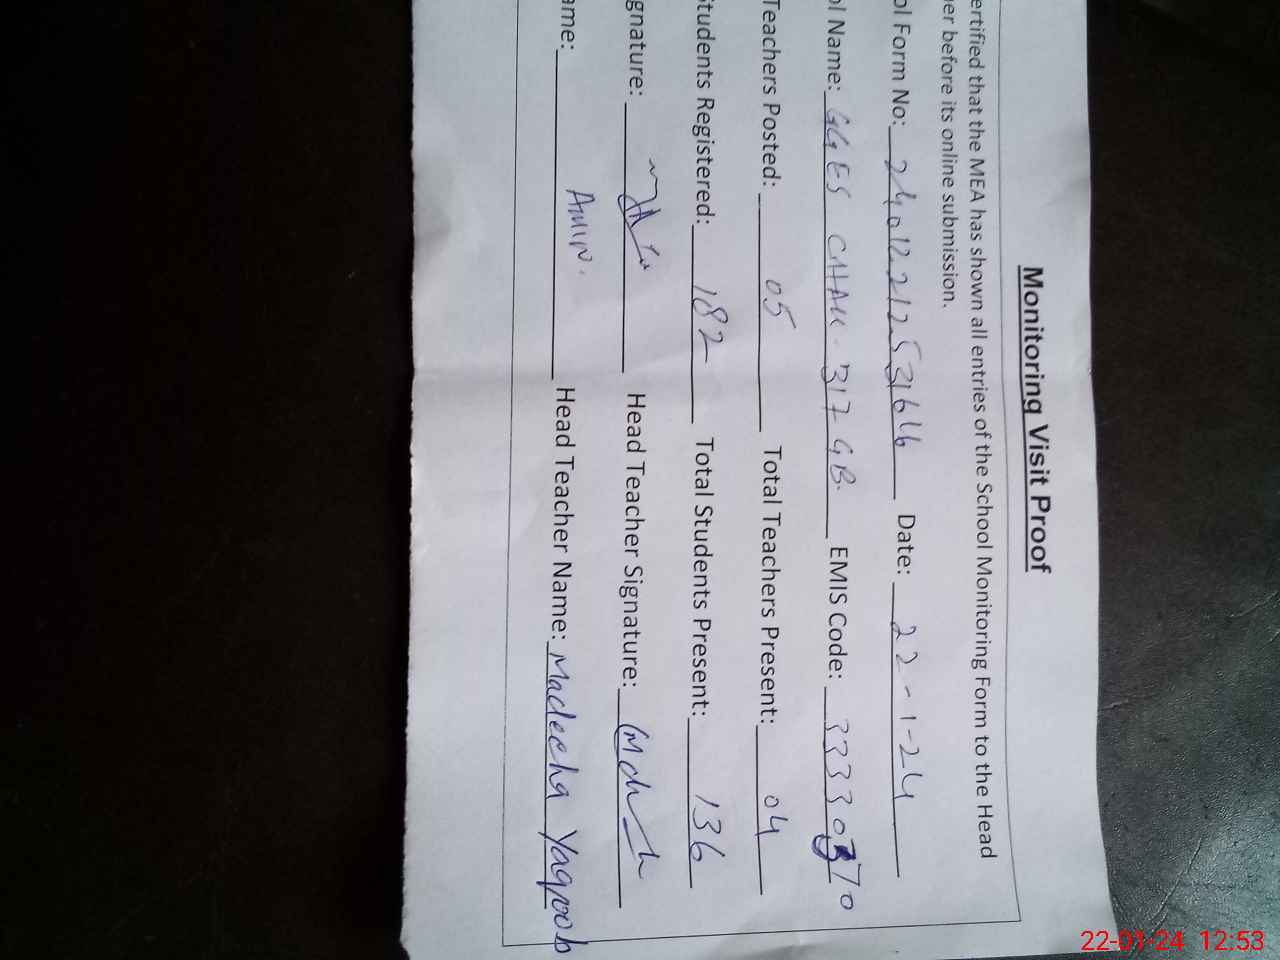 Monitoring Visit Proof
ertified that the MEA has shown all entries of the School Monitoring Form to the Head
er before its online submission.
ol Form No: Date: 22-1-24
ol Name: GGES CHAK-317 GB. EMIS Code: 33330370
Teachers Posted: 05 Total Teachers Present: 04
Students Registered: 182 Total Students Present: 136
gnature: Head Teacher Signature:
ame: AMIN. Head Teacher Name: Madeeha Yaqoob
22-01-24 12:53